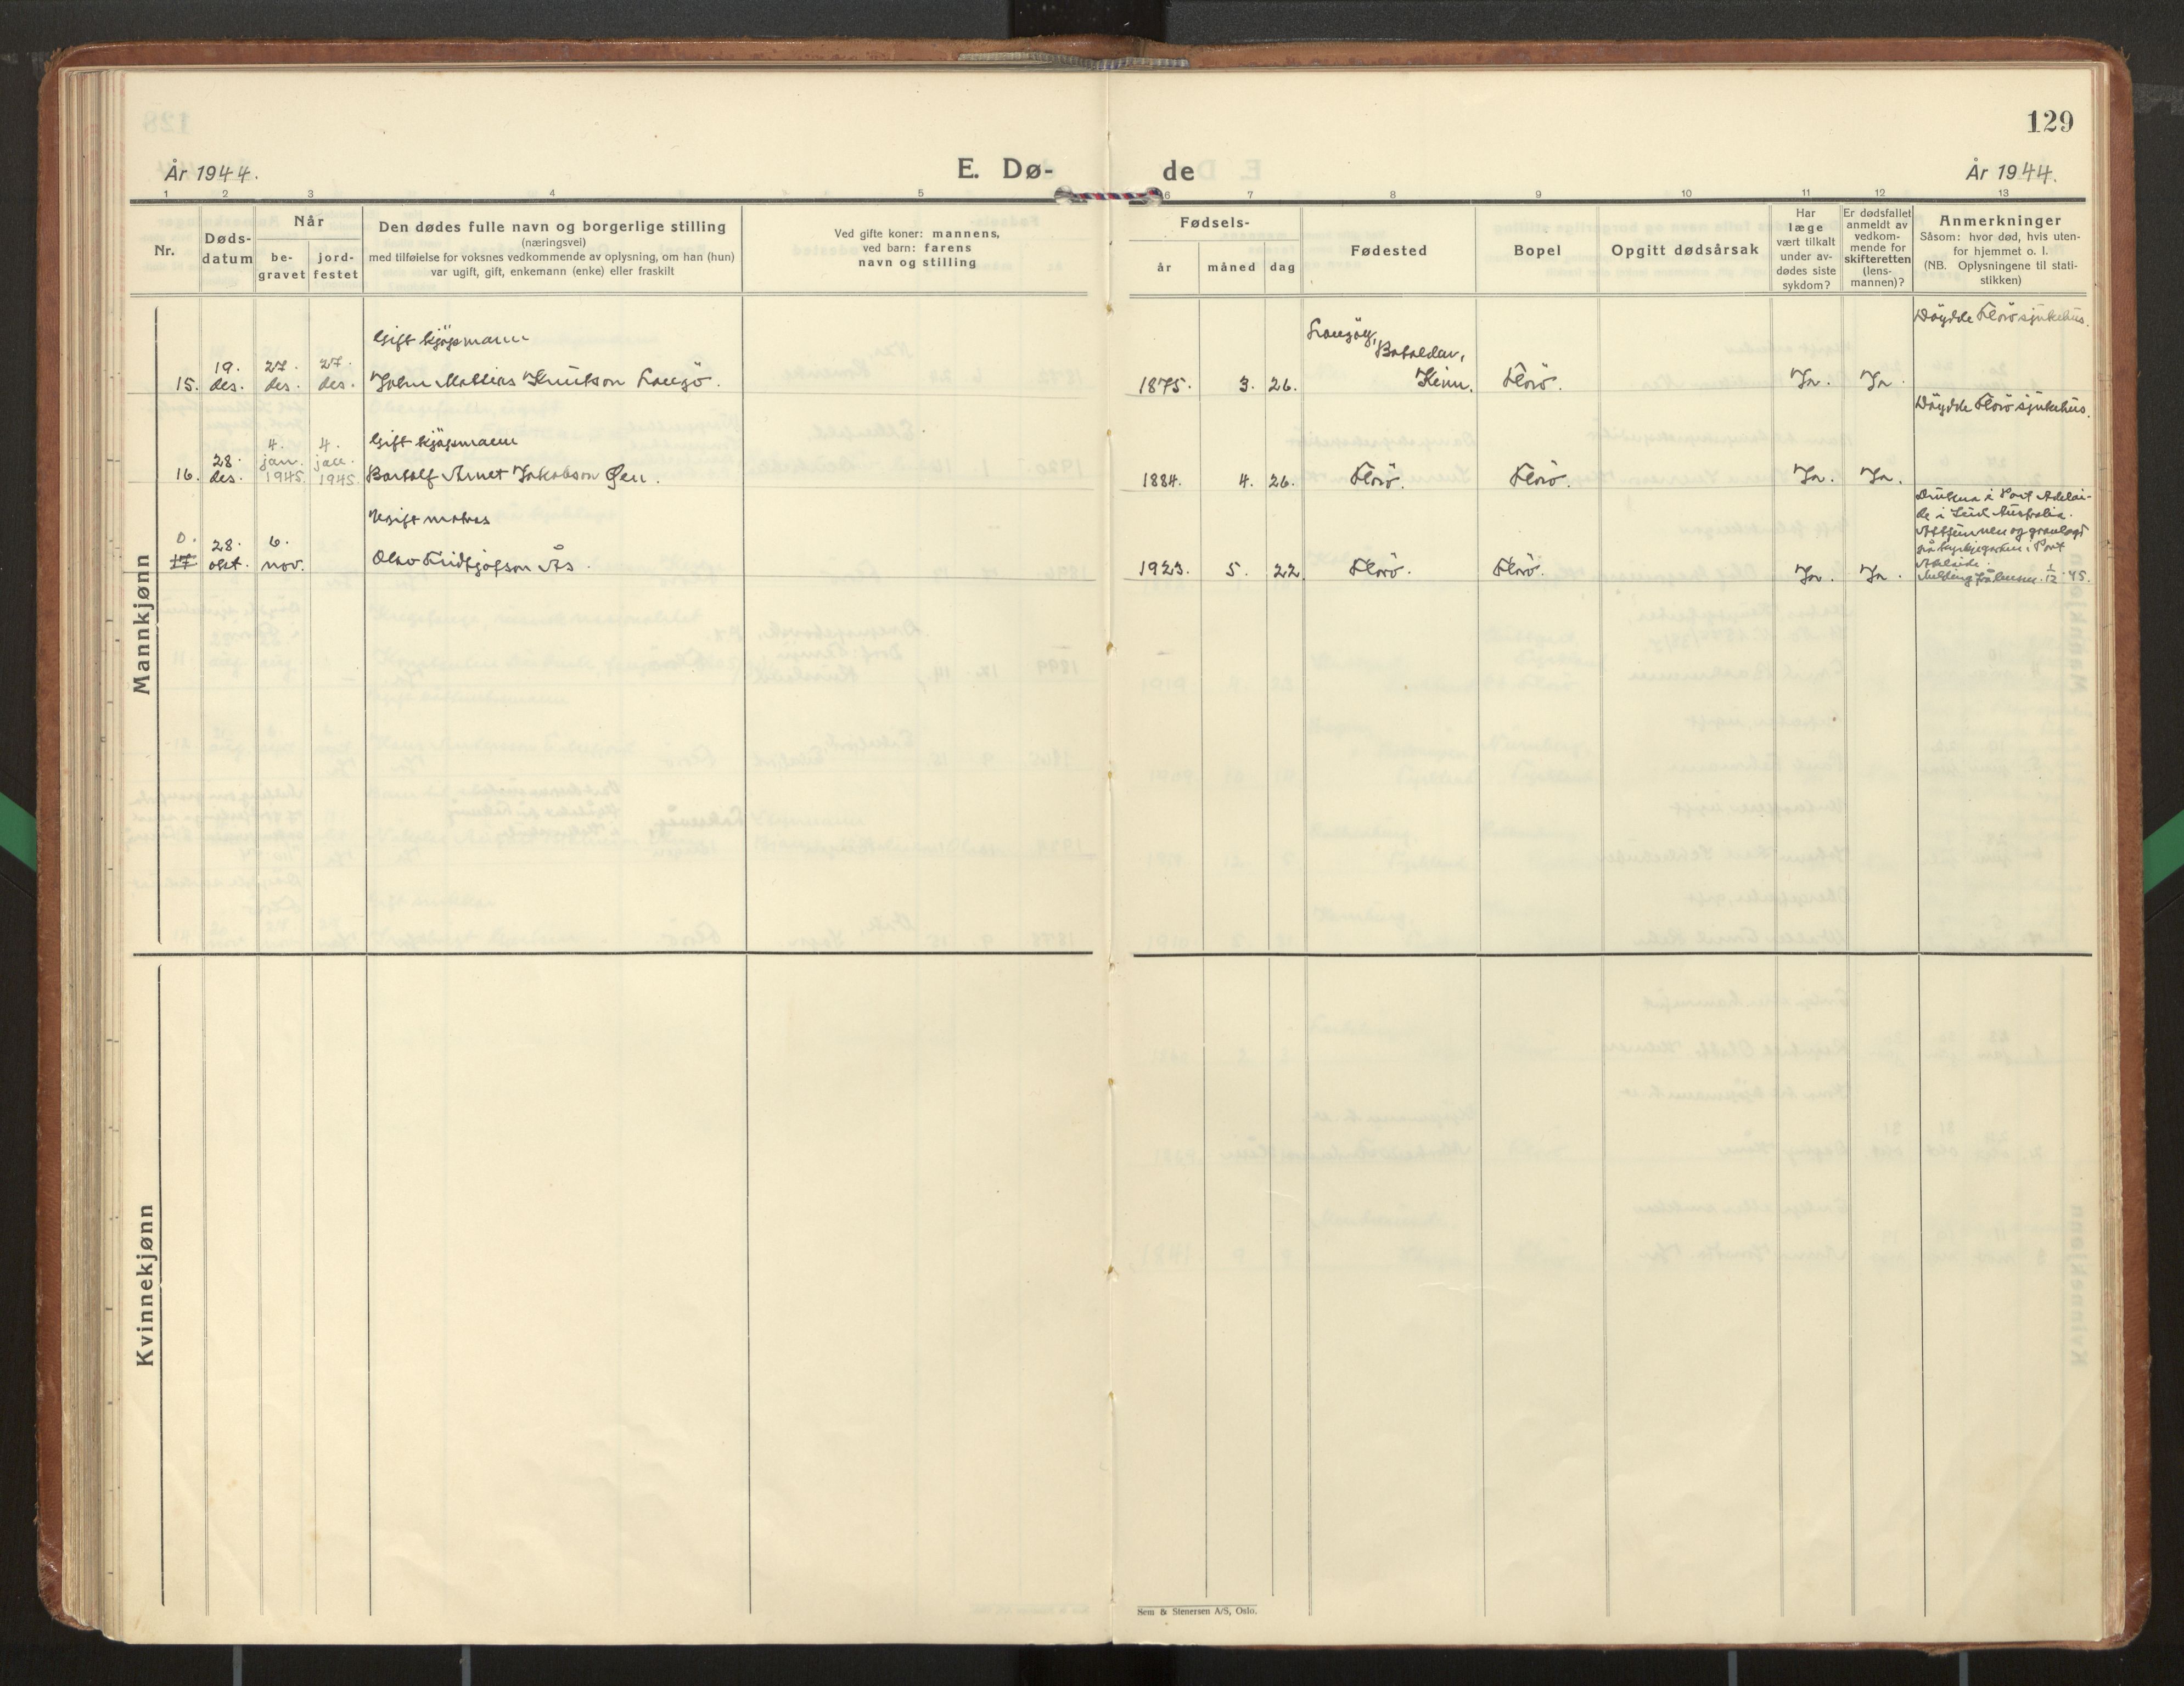 129
År 1944.
E. Dø-
de
År 1944.
1 2 3 4 5 6 7 8 9 10 11 12 13
Nr.
Døds-
datum
Når
be-
gravet
jord-
festet
Den dødes fulle navn og borgerlige stilling
(næringsvei)
med tilføielse for voksnes vedkommende av oplysning, om han (hun)
var ugift, gift, enkemann (enke) eller fraskilt
Ved gifte koner: mannens,
ved barn: farens
navn og stilling
Fødsels-
år måned dag
Fødested
Bopel
Opgitt dødsårsak
Har
læge
vært tilkalt
under av-
dødes siste
sykdom?
Er dødsfallet
anmeldt av
vedkom-
mende for
skifteretten
(lens-
mannen)?
Anmerkninger
Såsom: hvor død, hvis uten-
for hjemmet o. l.
(NB. Oplysningene til stati-
stikken)
Mannkjønn
Døydde Florö sjukehus.
Gift kjöpmann
Batalden,
19. 27. 27.
15. des. des. des. John Mathias Knutson 1875. 3. 26. Kinn. Florö. Ja. Ja.
Døydde Florö sjukehus.
Gift kjöpmann
4. 4.
28. jan. jan.
16. des. 1945. 1945. Jakobson Øen. 1884. 4. 26. Florö. Florö. Ja. Ja.
Drukna i Port Adelai-
de i Syd Australia.
Attfunnen og gravlagd
på kyrkjegarden i Port
Adelaide.
Ugift matros
0. 28. 6.
17 okt. nov. Olav Fridtjofson Ås. 1923. 5. 22 Florö. Florö. Ja. Ja.
Melding 1/12 45.
Kvinnekjønn
Sem & Stenersen A/S, Oslo.